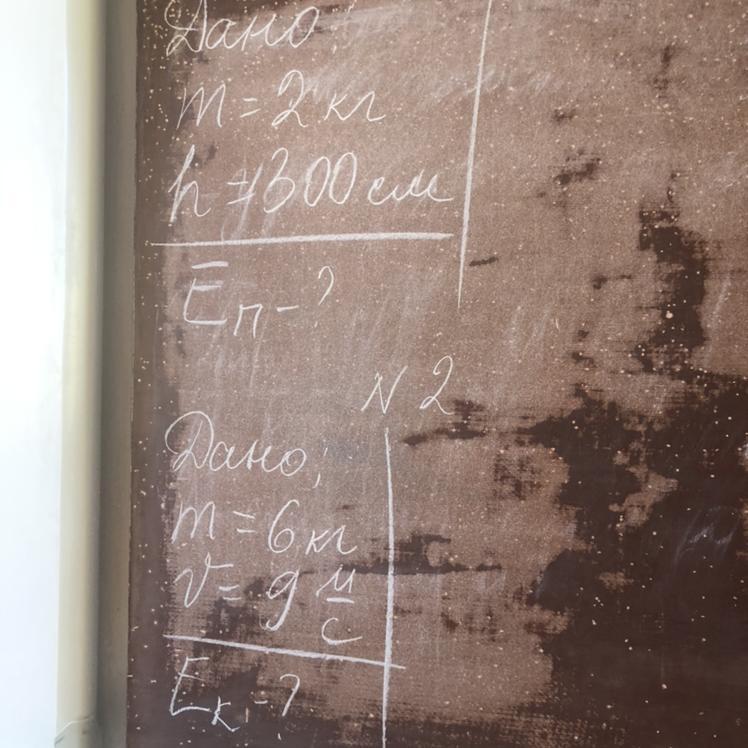 Дано:
m = 2 кг
h = 300 см
Eп - ?
N 2
Дано:
m = 6 кг
v = 9 м/с
Eк - ?